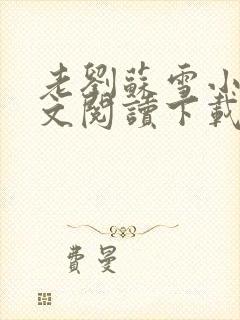 老劉蘇雪小
文閱讀下載
費曼